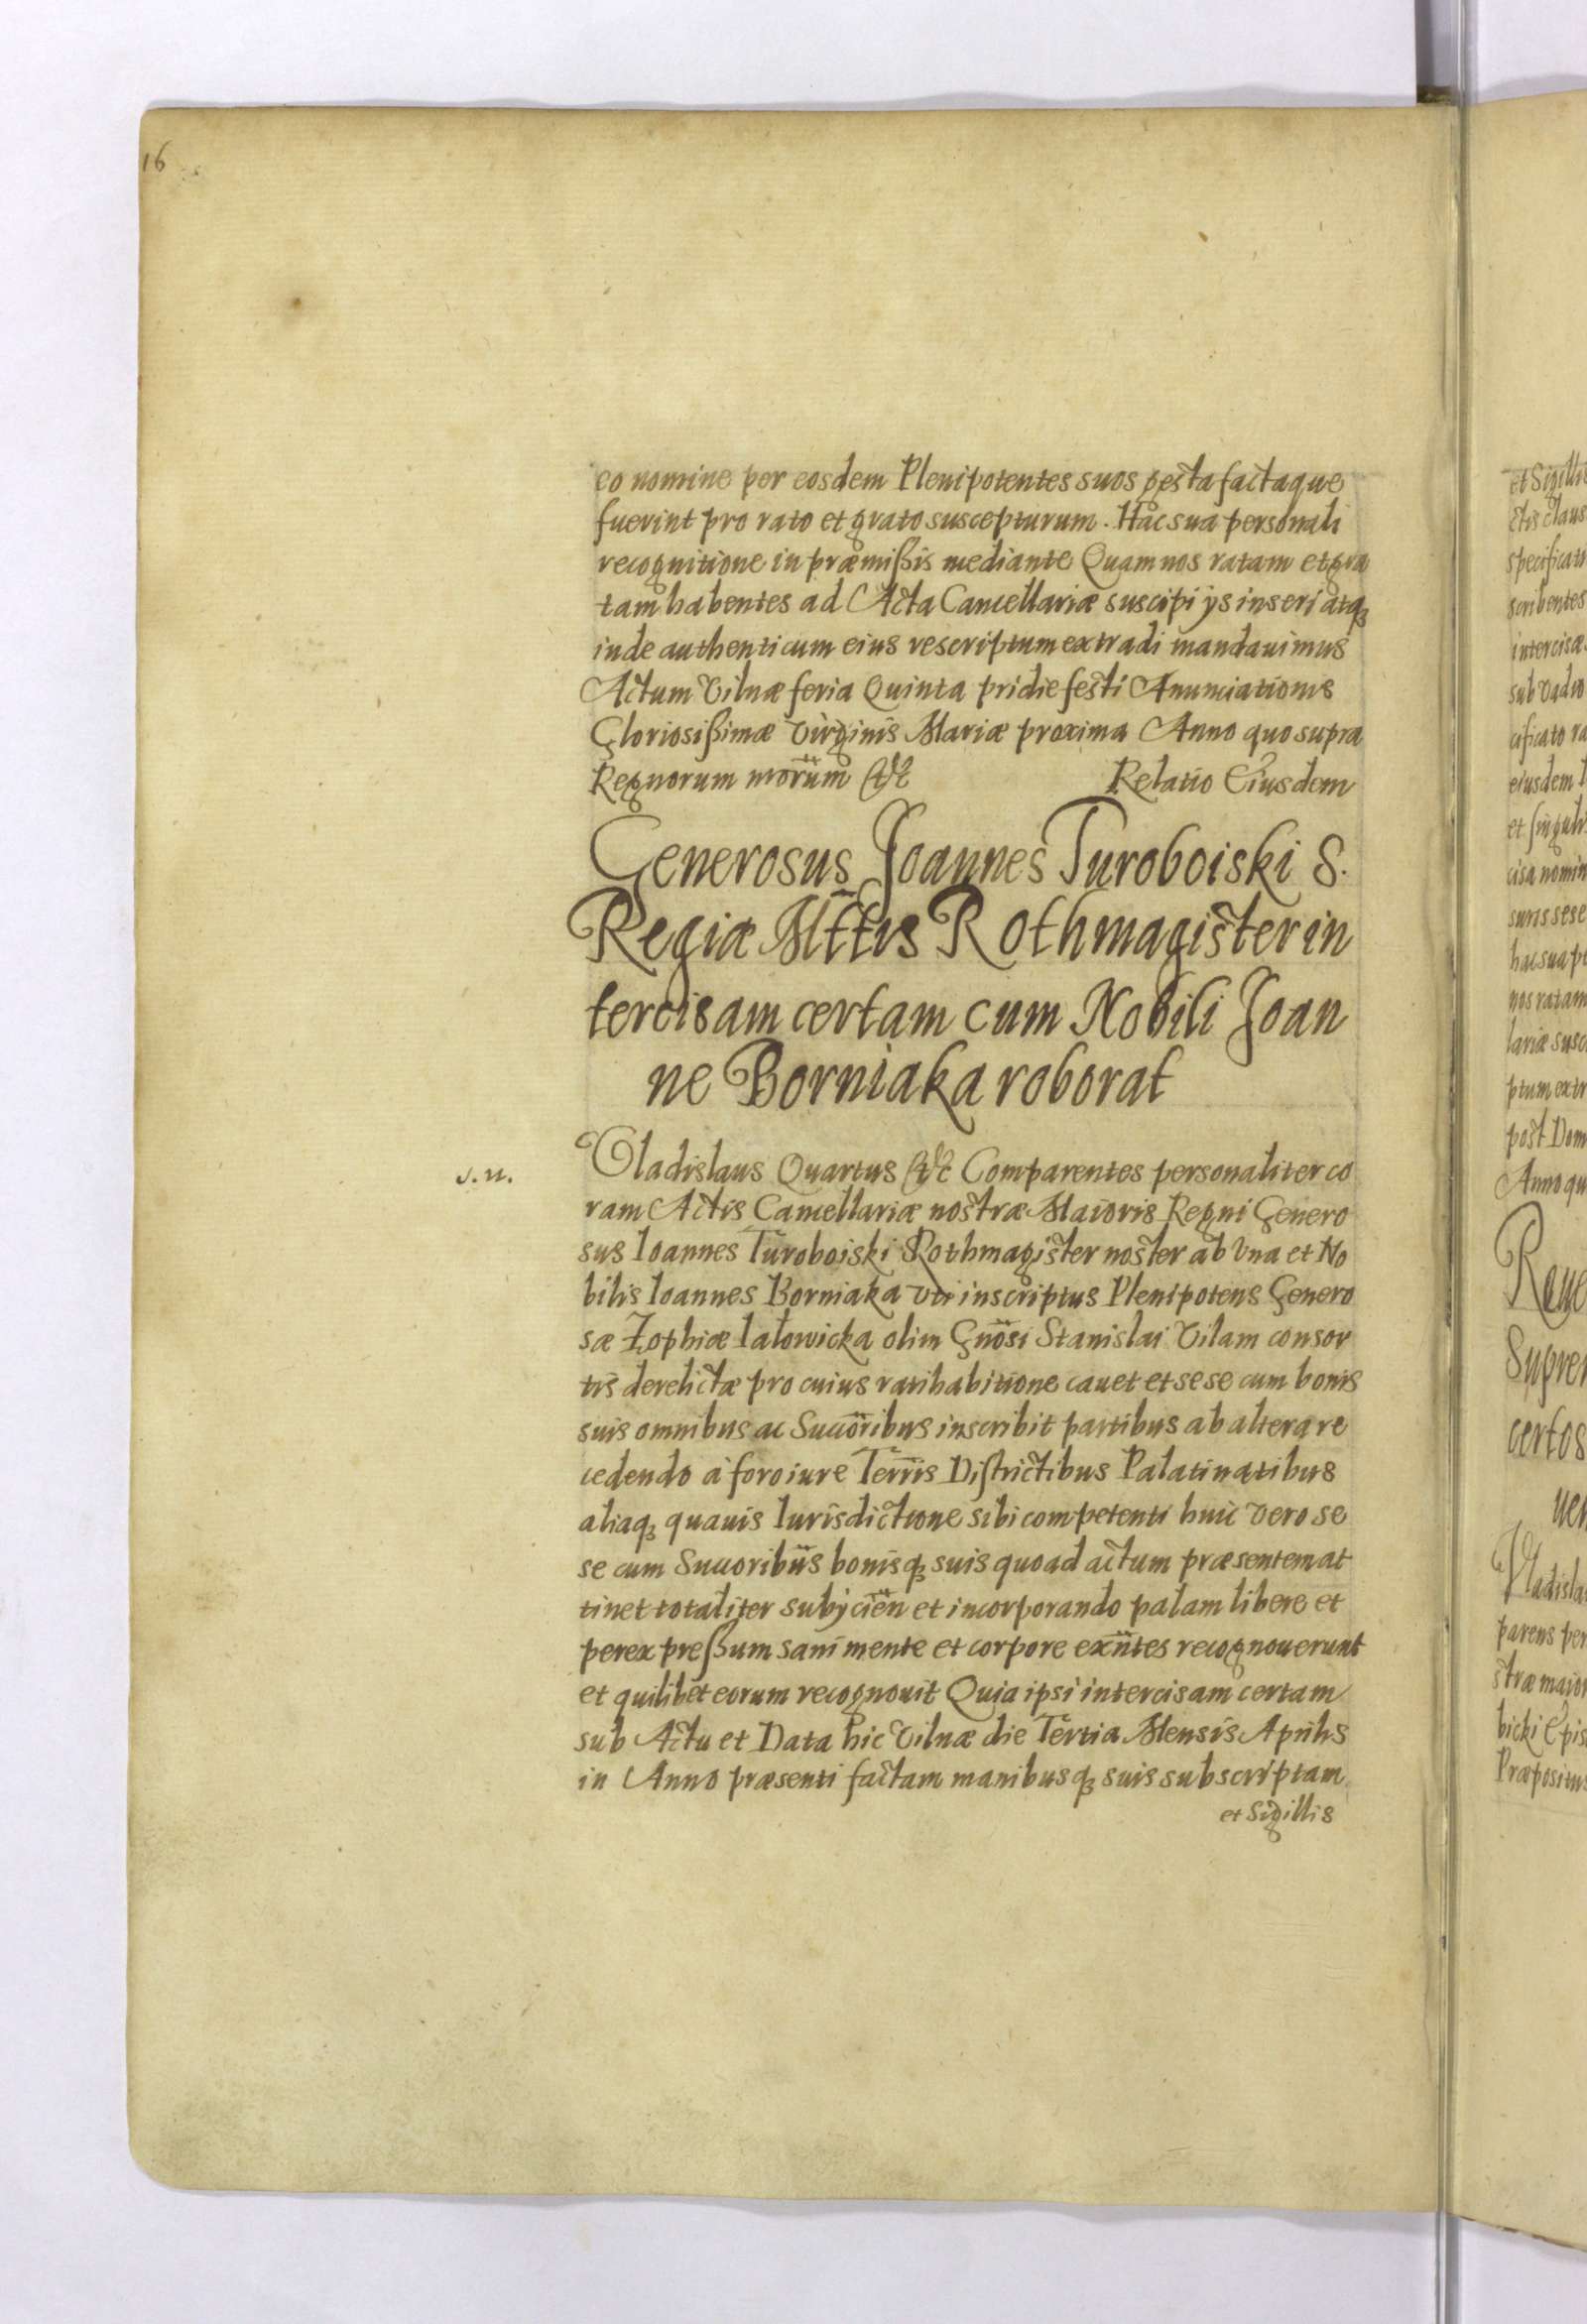 16
eo nomine per eosdem Plenipotentes suos gesta factaque
fuerint pro rato et grato suscepturum. Hac sua personali
recognitione in præmißis mediante Quam nos ratam et gra
tam habentes ad Acta Cancellariæ suscipi ijs inseri atq3
inde authenticum eius rescriptum extradi mandauimus
Actum Vilnæ feria Quinta pridie festi Anunciationis
Gloriosißimæ Virginis Mariæ proxima Anno quo supra
Regnorum nrorum &c Relatio Eiusdem
Generosus Joannes Turoboiski S.
Regiæ Mttis Rothmagister in
tercisam certam cum Nobili Joan
ne Borniaka roborat
J. n.
Vladislaus Quartus &c Comparentes personaliter co
ram Actis Cancellariæ nostræ Maioris Regni Genero
sus Ioannes Turoboiski Rothmagister noster ab Vna et No
bilis Ioannes Borniaka vti inscriptus Plenipotens Genero
sæ Zophiæ Iałowicka olim Gnosi Stanislai Vilam consor
tis derelictæ pro cuius ratihabitione cauet et sese cum bonis
suis omnibus ac Succoribus inscribit partibus ab altera re
cedendo à foro iure Terris Districtibus Palatinatibus
aliaq3 quauis Iurisdictione sibi competenti huic vero se
se cum Succoribus bonisq3 suis quoad actum præsentem at
tinet totaliter subijcien et incorporando palam libere et
per expreßum sani mente et corpore exntes recognouerunt
et quilibet eorum recognouit Quia ipsi intercisam certam
sub Actu et Data hic Vilnæ die Tertia Mensis Aprilis
in Anno præsenti factam manibusq3 suis subscriptam
et Sigillis
et Sigillis
specificat
scribentes
intercisæ
sub Vadio
cificato ra
eiusdem
et singulis
cisa nomin
suns sese
hac sua pe
nos ratam
lariæ susc
ptum extr
post Dom
Anno qu
Reue
Supre
certos
uen
Vladisla
parens per
stræ maior
bicki Epis
Præpositus